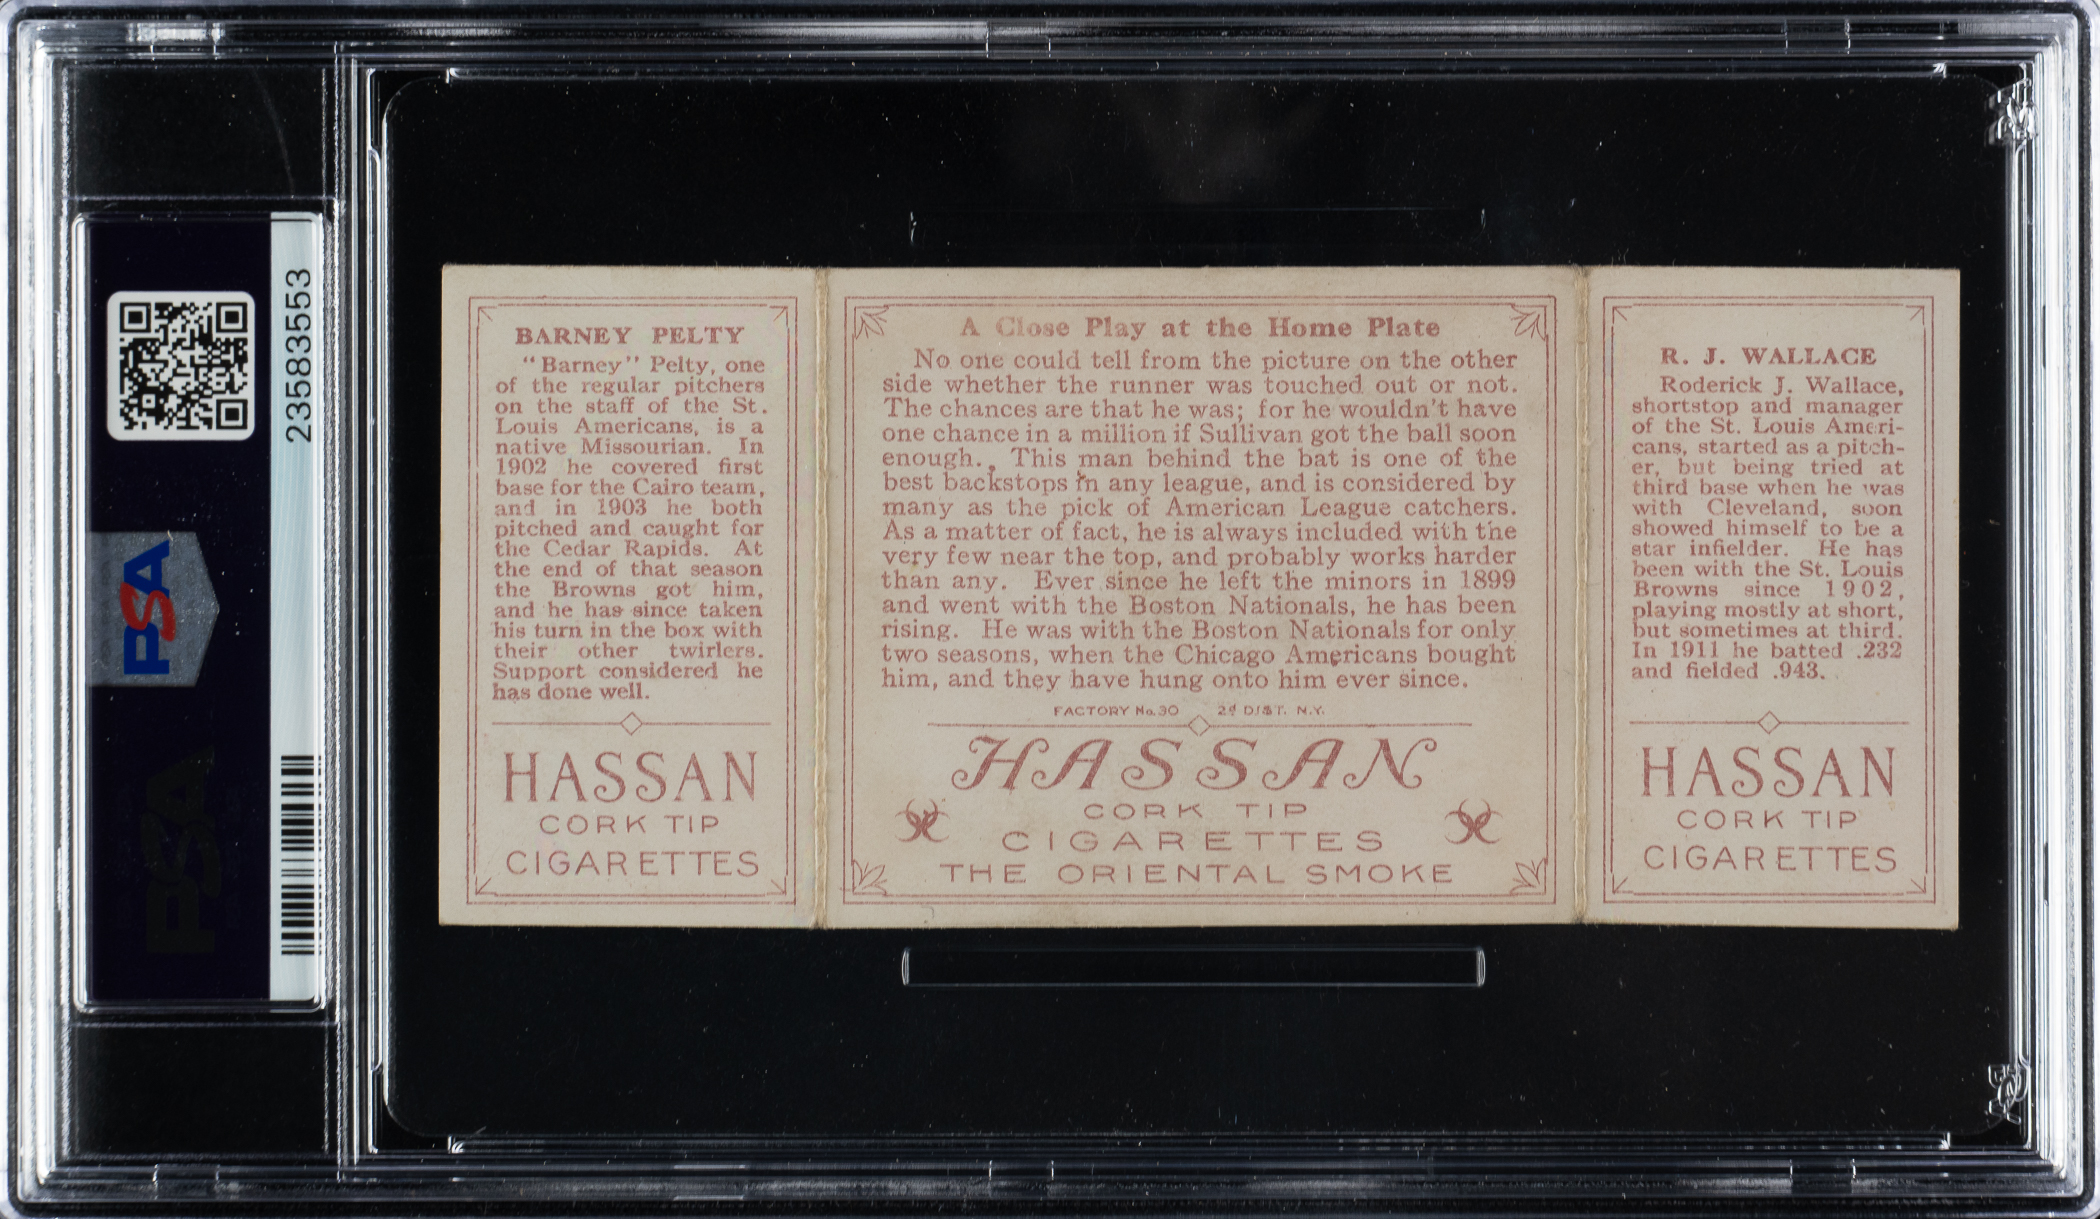 23583553
PSA
PSA
BARNEY PELTY
"Barney" Pelty, one
of the regular pitchers
on the staff of the St.
Louis Americans, is a
native Missourian. In
1902 he covered first
base for the Cairo team,
and in 1903 he both
pitched and caught for
the Cedar Rapids. At
the end of that season
the Browns got him,
and he has since taken
his turn in the box with
their other twirlers.
Support considered he
has done well.
HASSAN
CORK TIP
CIGARETTES
A Close Play at the Home Plate
No one could tell from the picture on the other
side whether the runner was touched out or not.
The chances are that he was; for he wouldn't have
one chance in a million if Sullivan got the ball soon
enough. This man behind the bat is one of the
best backstops in any league, and is considered by
many as the pick of American League catchers.
As a matter of fact, he is always included with the
very few near the top, and probably works harder
than any. Ever since he left the minors in 1899
and went with the Boston Nationals, he has been
rising. He was with the Boston Nationals for only
two seasons, when the Chicago Americans bought
him, and they have hung onto him ever since.
FACTORY No. 30 2d DIST. N.Y.
HASSAN
CORK TIP
CIGARETTES
THE ORIENTAL SMOKE
R. J. WALLACE
Roderick J. Wallace,
shortstop and manager
of the St. Louis Ameri-
cans, started as a pitch-
er, but being tried at
third base when he was
with Cleveland, soon
showed himself to be a
star infielder. He has
been with the St. Louis
Browns since 1902,
playing mostly at short,
but sometimes at third.
In 1911 he batted .232
and fielded .943.
HASSAN
CORK TIP
CIGARETTES